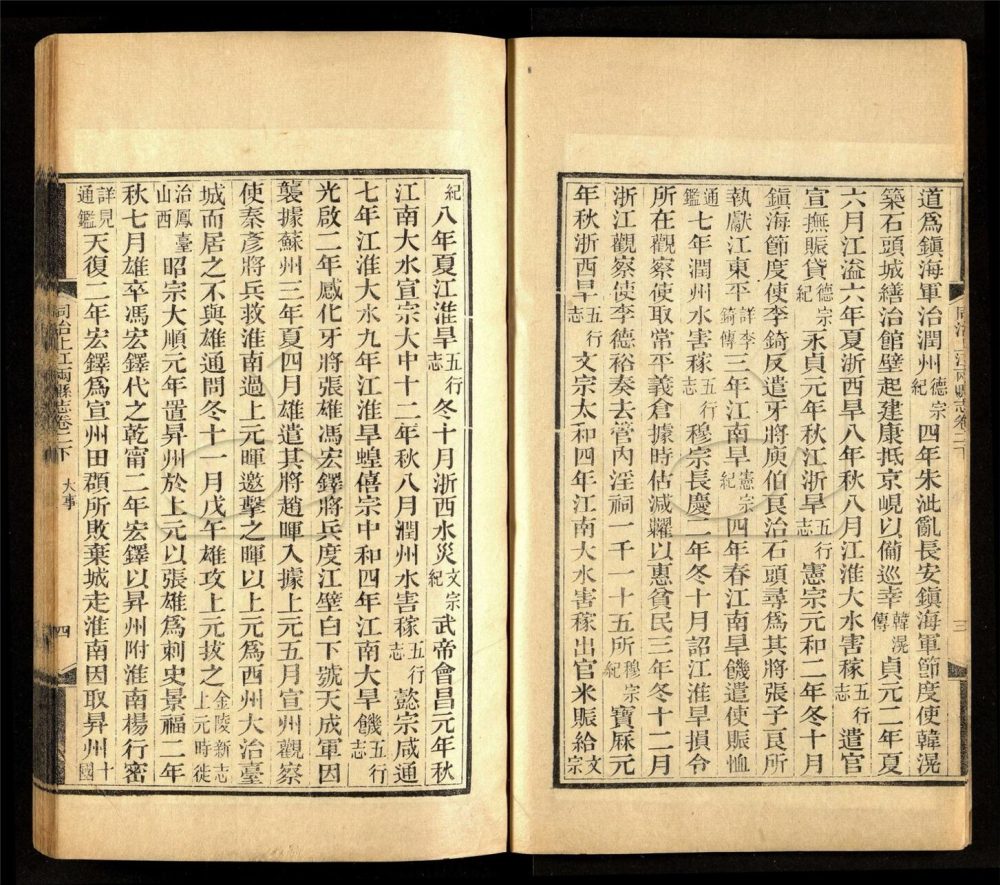 道爲鎭海軍治潤州德宗紀四年朱泚亂長安鎭海軍節度使韓滉
築石頭城繕治館壁起建康抵京峴以備巡幸韓滉傳貞元二年夏
六月江溢六年夏浙西旱八年秋八月江淮大水害稼五行志遣官
宣撫賑貸德宗紀永貞元年秋江浙旱五行志憲宗元和二年冬十月
鎭海節度使李錡反遣牙將庾伯良治石頭尋爲其將張子良所
執獻江東平詳李錡傳三年江南旱憲宗紀四年春江南旱饑遣使賑恤
通鑑七年潤州水害稼五行志穆宗長慶二年冬十月詔江淮旱損令
所在觀察使取常平義倉據時估減糶以惠貧民三年冬十二月
浙江觀察使李德裕奏去管內淫祠一千一十五所穆宗紀寶厤元
年秋浙西旱五行志文宗太和四年江南大水害稼出官米賑給文宗
同治上江兩縣志卷二下
三
紀八年夏江淮旱五行志冬十月浙西水災文宗紀武帝會昌元年秋
江南大水宣宗大中十二年秋八月潤州水害稼五行志懿宗咸通
七年江淮大水九年江淮旱蝗僖宗中和四年江南大旱饑五行志
光啟二年感化牙將張雄馮宏鐸將兵度江壁白下號天成軍因
襲據蘇州三年夏四月雄遣其將趙暉入據上元五月宣州觀察
使秦彥將兵救淮南過上元暉邀擊之暉以上元爲西州大治臺
城而居之不與雄通問冬十一月戊午雄攻上元拔之金陵新志上元時徙
治鳳臺山西昭宗大順元年置昇州於上元以張雄爲刺史景福二年
秋七月雄卒馮宏鐸代之乾甯二年宏鐸以昇州附淮南楊行密
詳見通鑑天復二年宏鐸爲宣州田頵所敗棄城走淮南因取昇州十國
同治上江兩縣志卷二下
大事
四